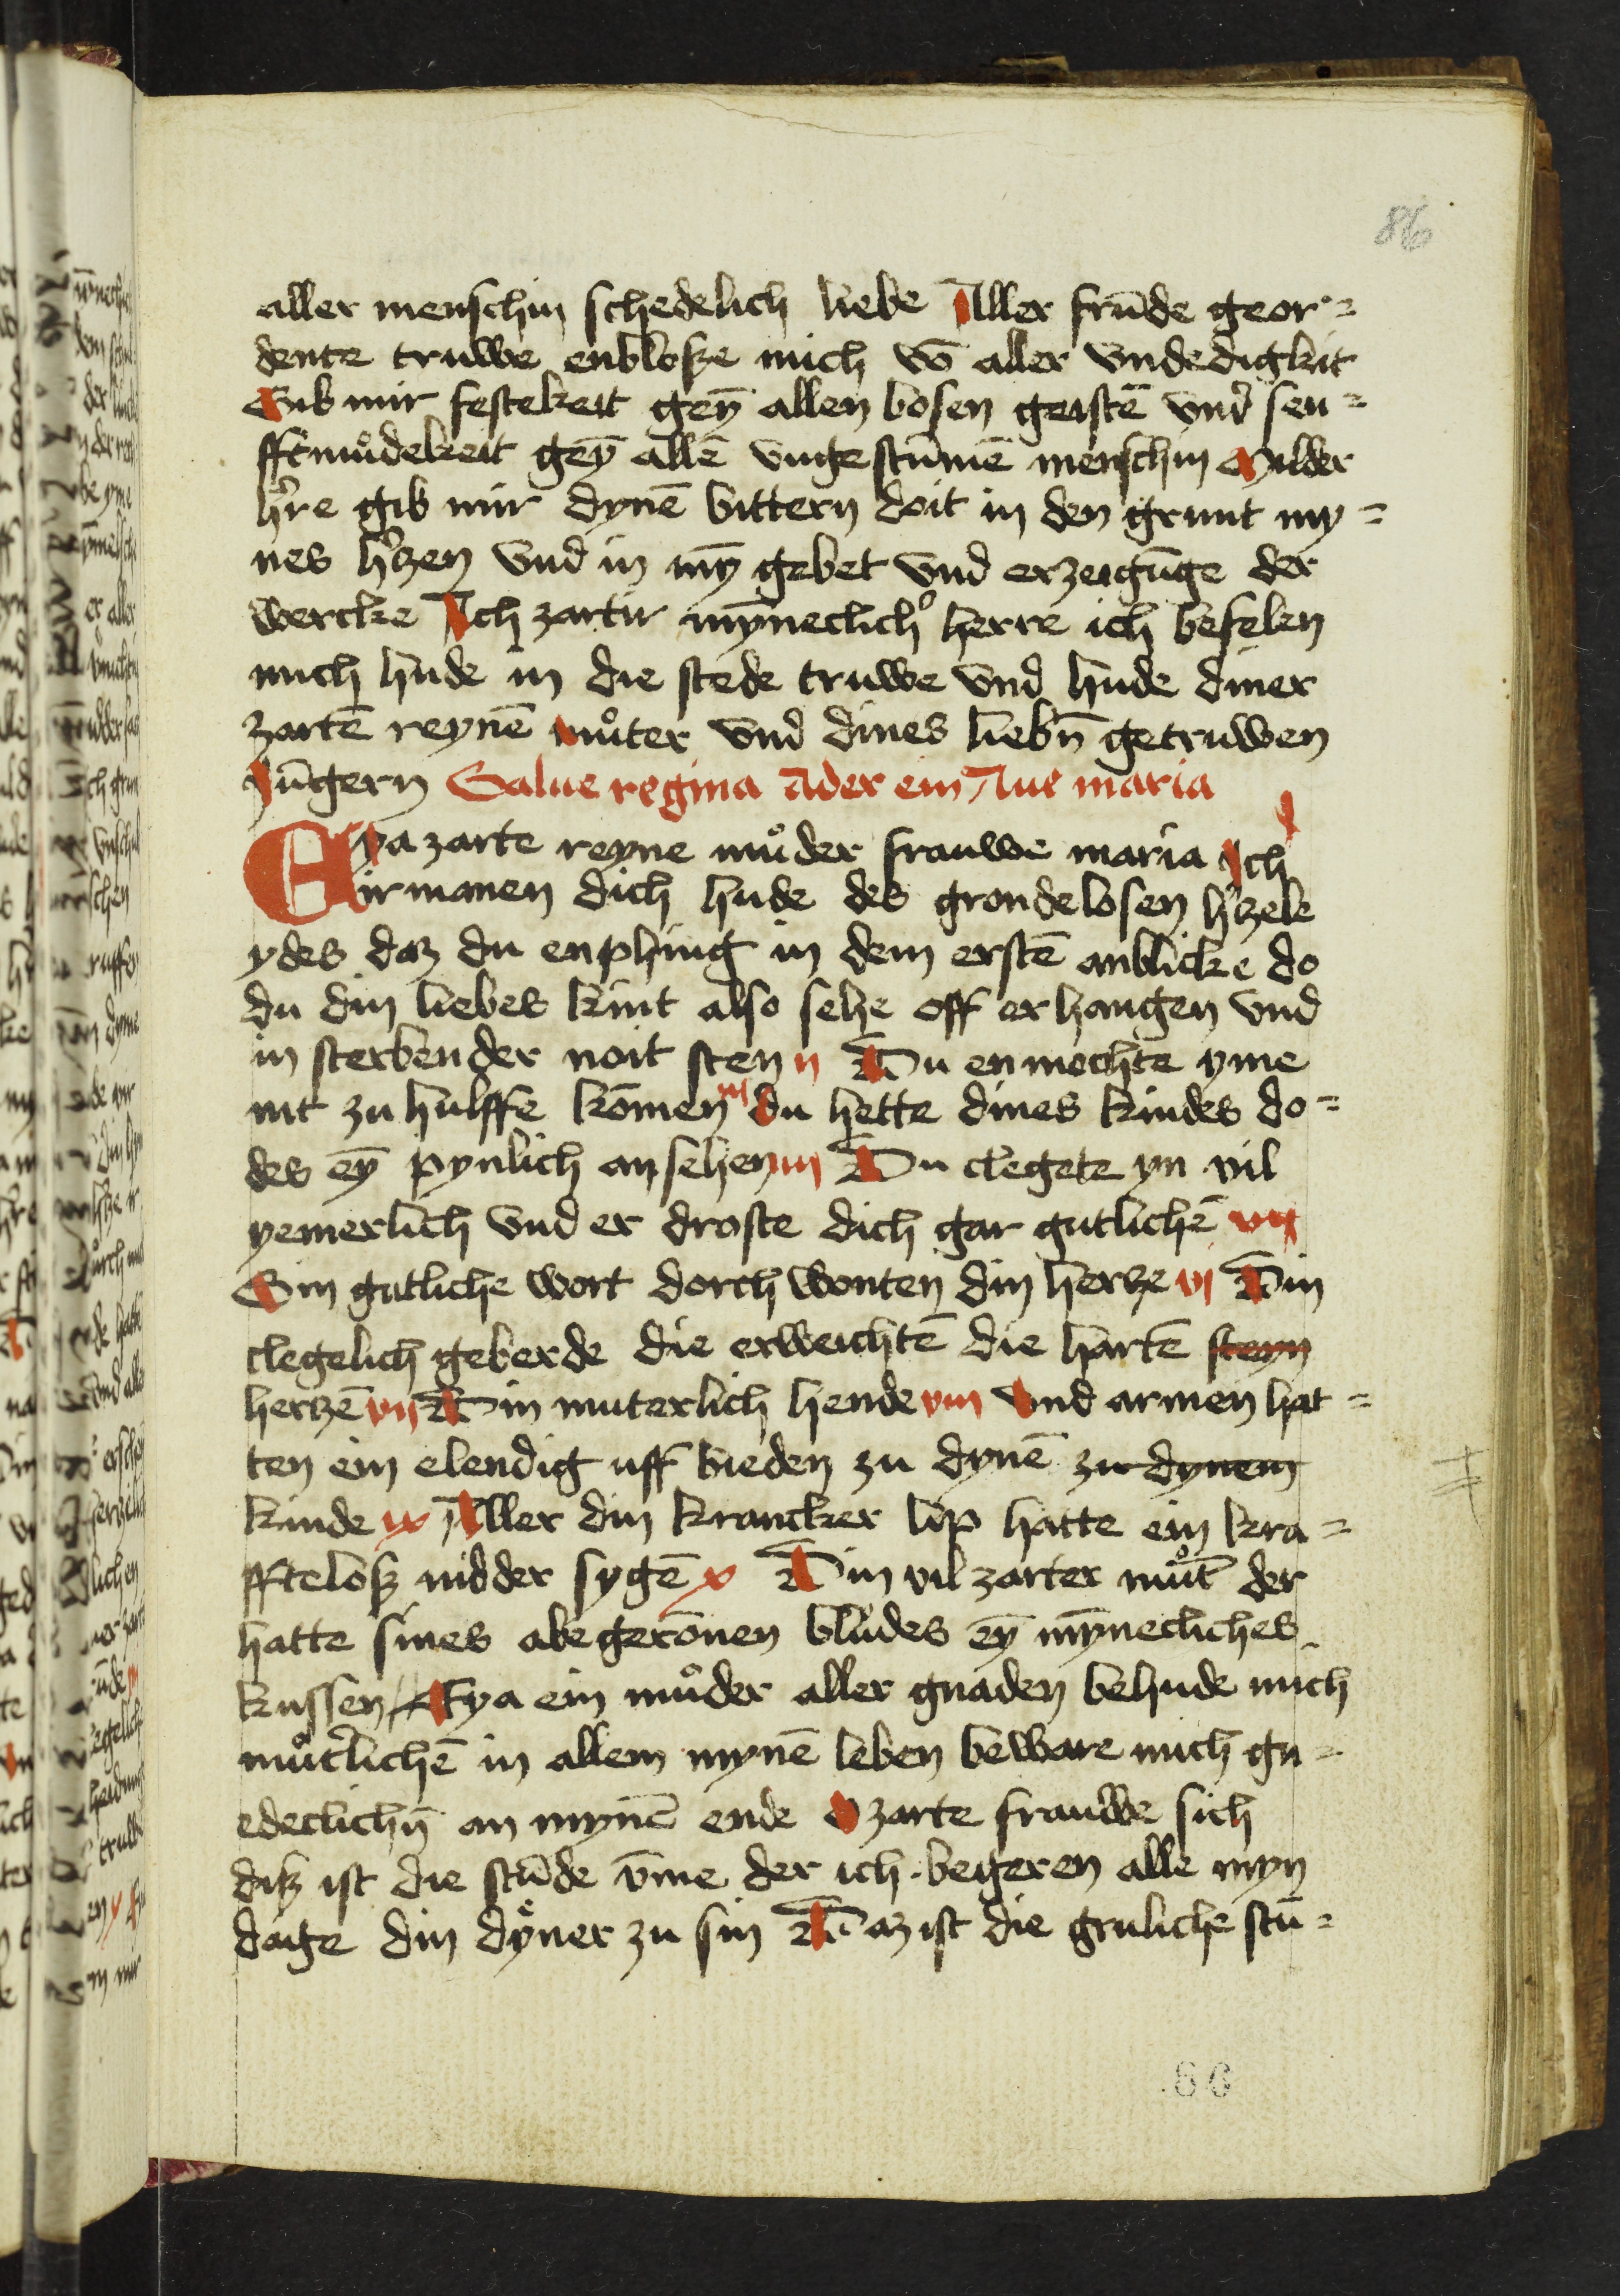 86
aller menschin schedelich liebe Aller frūde geor=
dente truwe enbloße mich vō aller vndedigkeit
Gib mir festekeit geȳ allen bosen geistē vnd sen=
fftmůdekeit geȳ allē vngestūmē menschin Milder
h're gib mir dynē bittern doit in den grunt my=
nes h'zen vnd in mȳ gebet vnd erzeigūge der
wercke Ach zartir mȳneclich' herre ich befelen
mich hude in die stede truwe vnd hude diner
zartē reynē můter vnd dines liebn̄ getruwen
Jūgern Salue regina Ader ein Aue maria
Eya zarte reyne můder frauwe maria Ich j
irmanen dich hude des grondelosen h'zele
ydes daz du enphing in dem erstē anblicke do
du din liebes kint also sehe off erhangen vnd
in sterbender noit sten ij Du en mochte yme
nit zu hulffe kōmen iij du hette dines kindes do=
des eȳ pynlich ansehen iiij Du clegete yn vil
yemerlich vnd er droste dich gar gutlichē vij
Sin gutliche wort dorch wonten din hertze vj Din
clegelich geberde die erweichtē die hartē steyn
hertzē vij Din muterlich hende viij vnd armen hat=
ten ein elendig uff bieden zu dynē zu dynem
kinde ix Aller din krancker lip hatte ein kra=
fftelosz nidder sygē x Din vil zarter můt der
hatte sines abegerōnen bludes eȳ mȳnecliches
kussen Eya ein můder aller gnaden behude mich
můt'lichē in allem mynē leben beware mich gn=
edeclichn̄ an mynē ende O zarte frauwe sich
diß ist die stūde v̄me der ich begeren alle myn
dage din dyner zu sin Daz ist die gruliche stū=
86